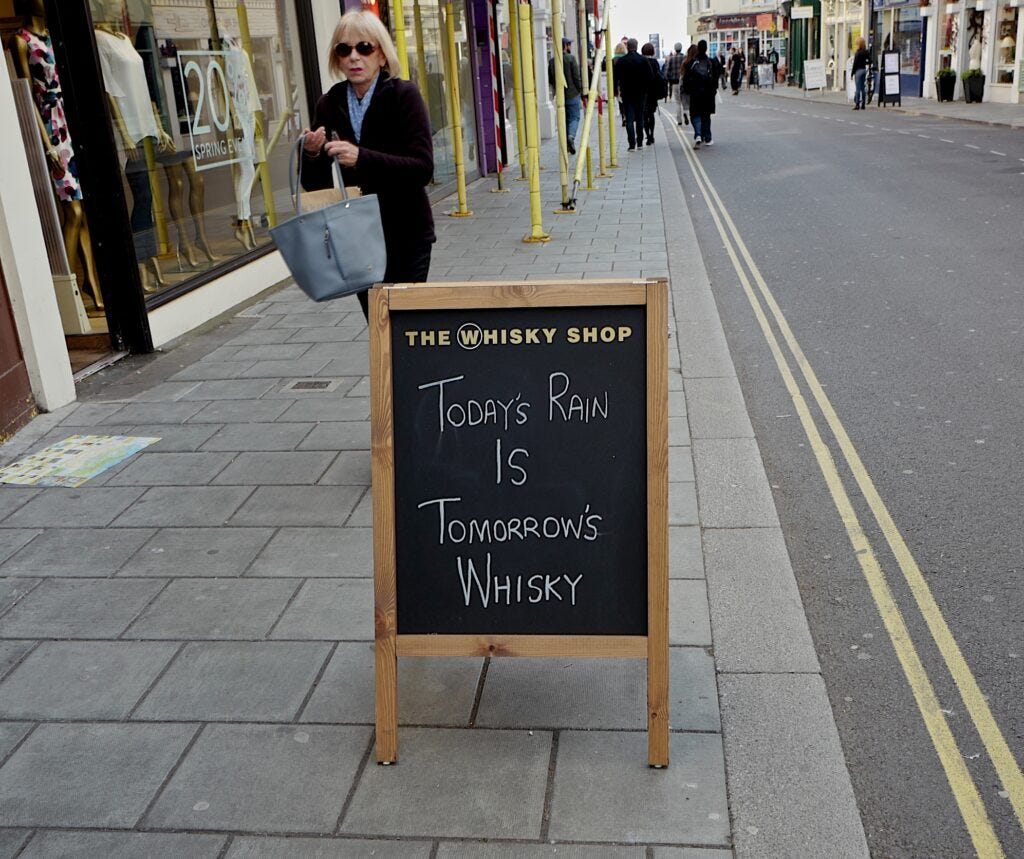 20%
SPRING EVE
THE WHISKY SHOP
TODAY'S RAIN
IS
TOMORROW'S
WHISKY